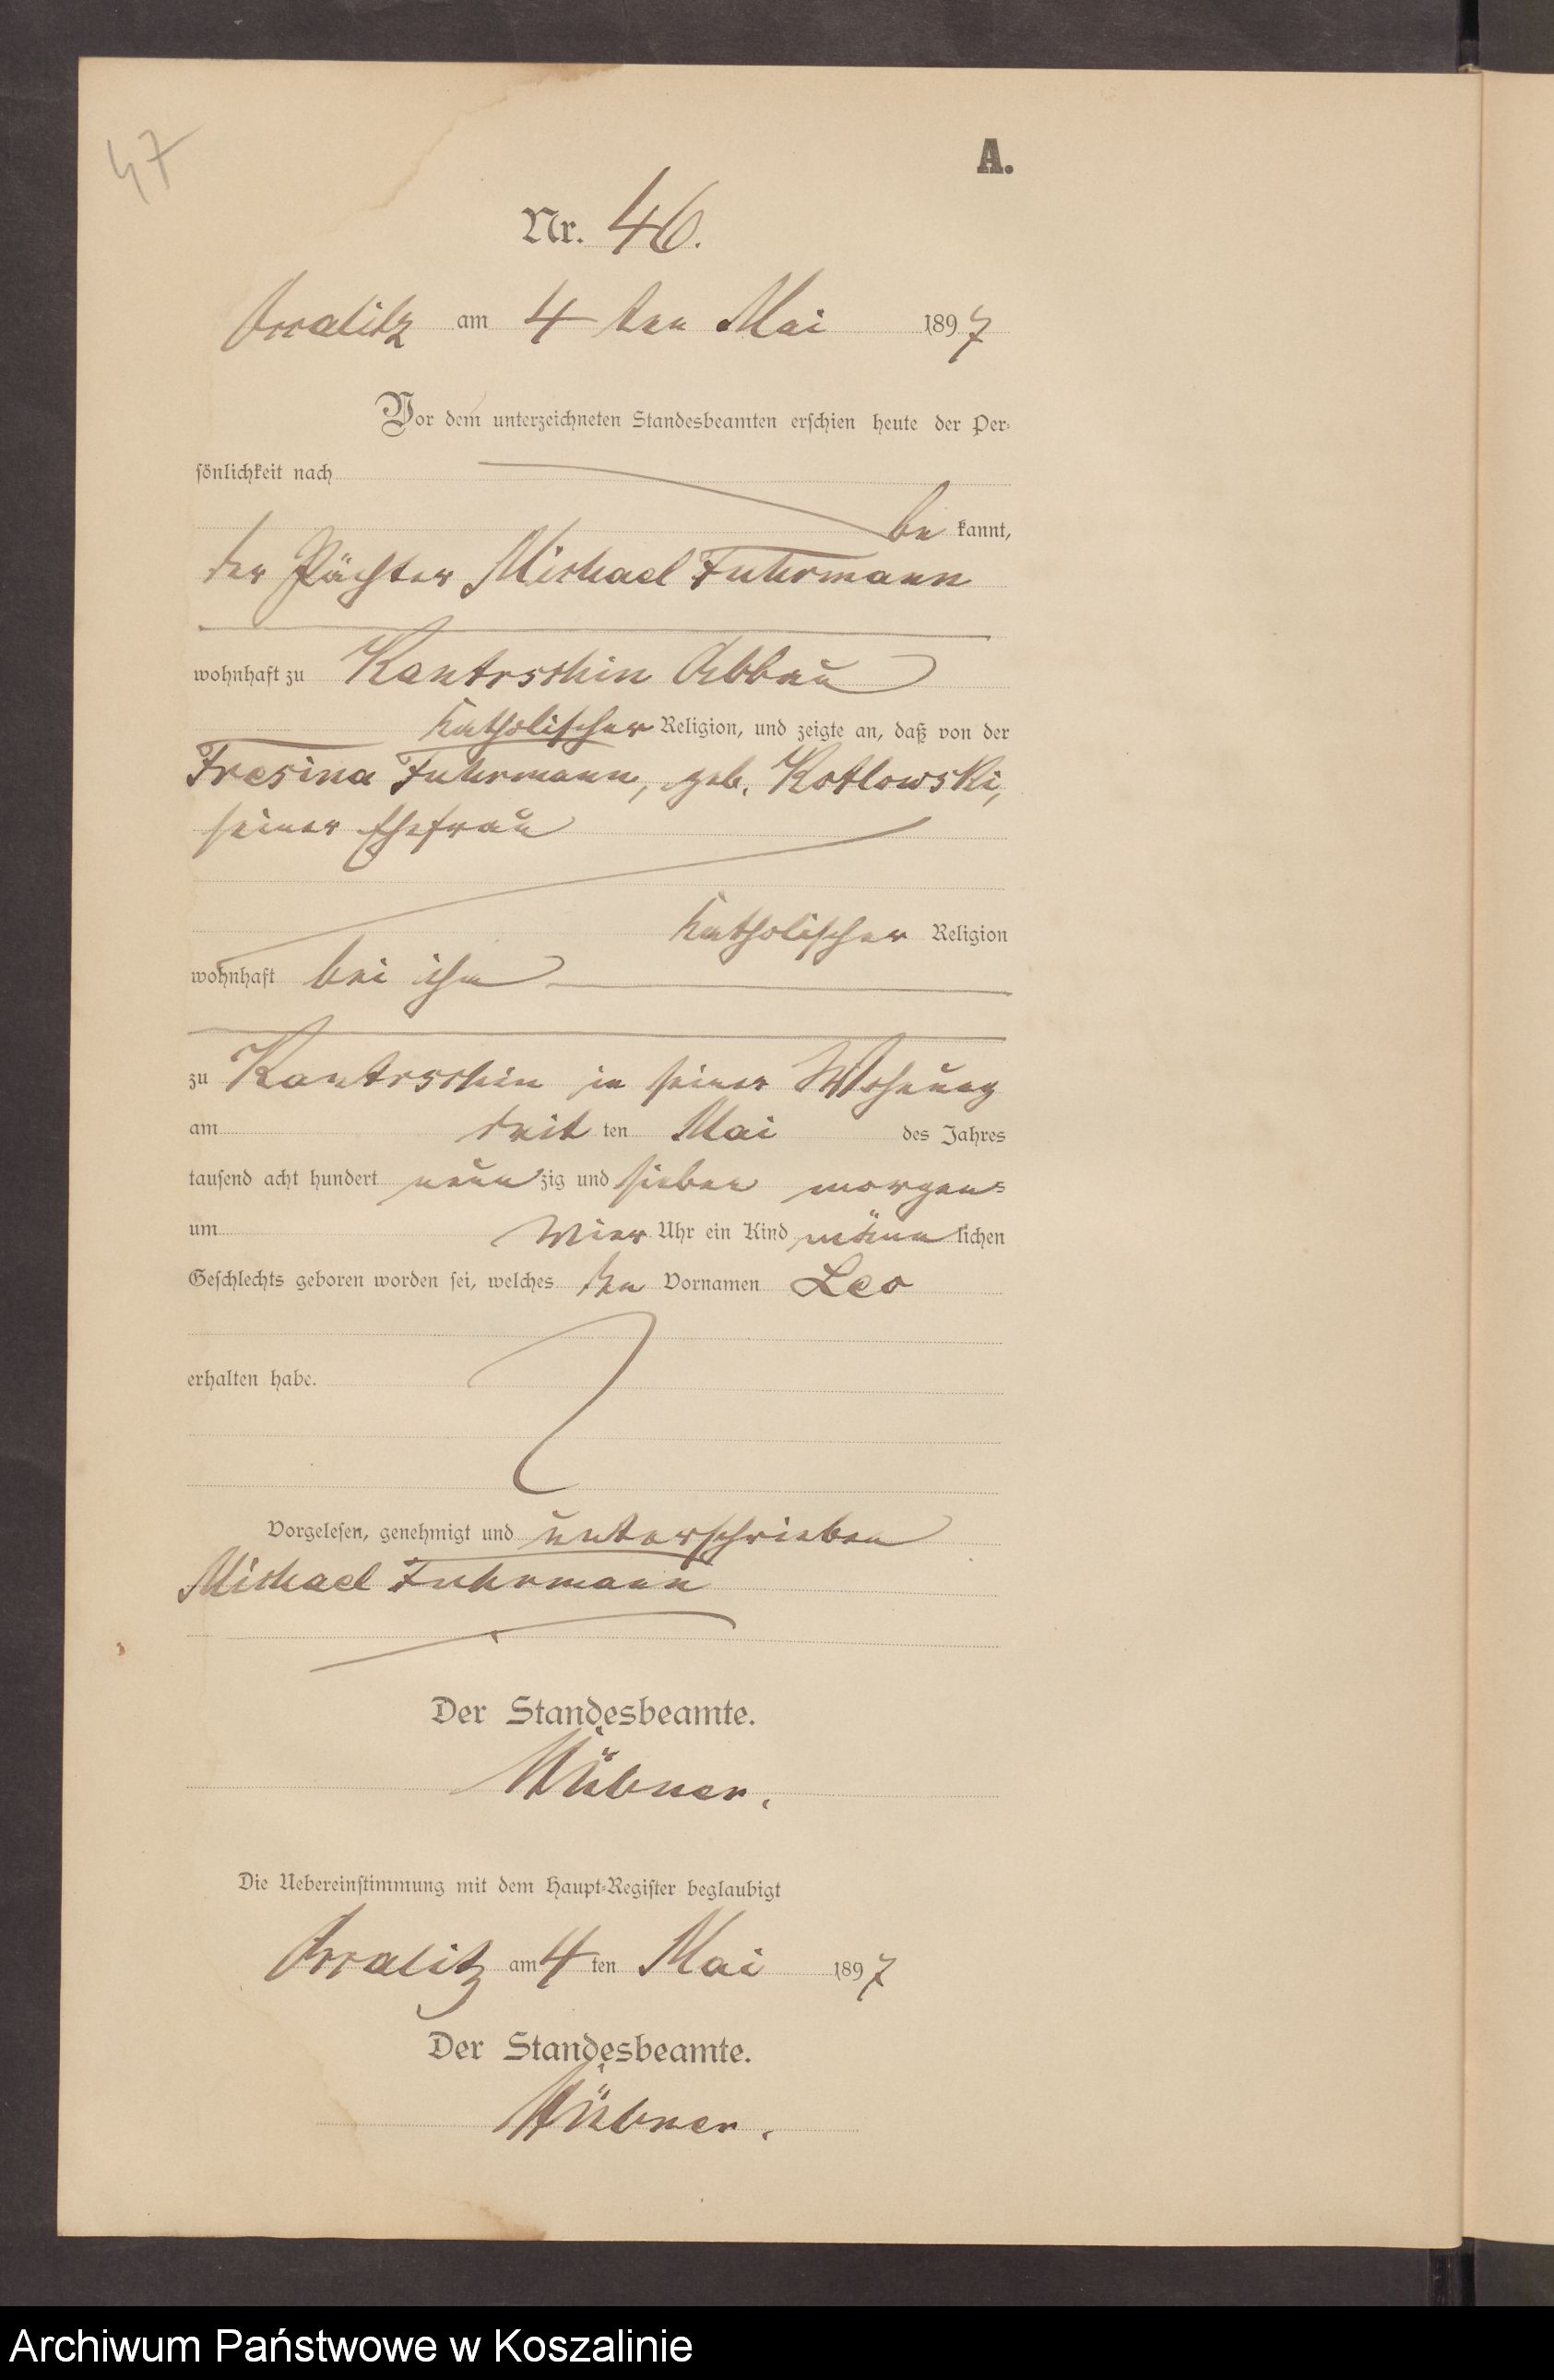 47
A.
Nr. 46.
am 4 ten Mai 1897
Vor dem unterzeichneten Standesbeamten erschien heute der Per-
sönlichkeit nach
be kannt,
der Pächter Michael Fuhrmann
wohnhaft zu Kantrschin Abbau
katholischer Religion, und zeigte an, daß von der
Fresina Fuhrmann, geb. Kotlowski,
seiner Ehefrau
katholischer Religion
wohnhaft bei ihm
zu Kantrschin in seiner Wohnung
am ten Mai des Jahres
tausend acht hundert neunzig und sieben morgens
um vier Uhr ein Kind männlichen
Geschlechts geboren worden sei, welches den Vornamen Leo
erhalten habe.
Vorgelesen, genehmigt und unterschrieben
Michael Fuhrmann
Der Standesbeamte.
Hübner.
Die Uebereinstimmung mit dem Haupt-Register beglaubigt
am 4 ten Mai 1897
Der Standesbeamte.
Hübner.
Archiwum Państwowe w Koszalinie